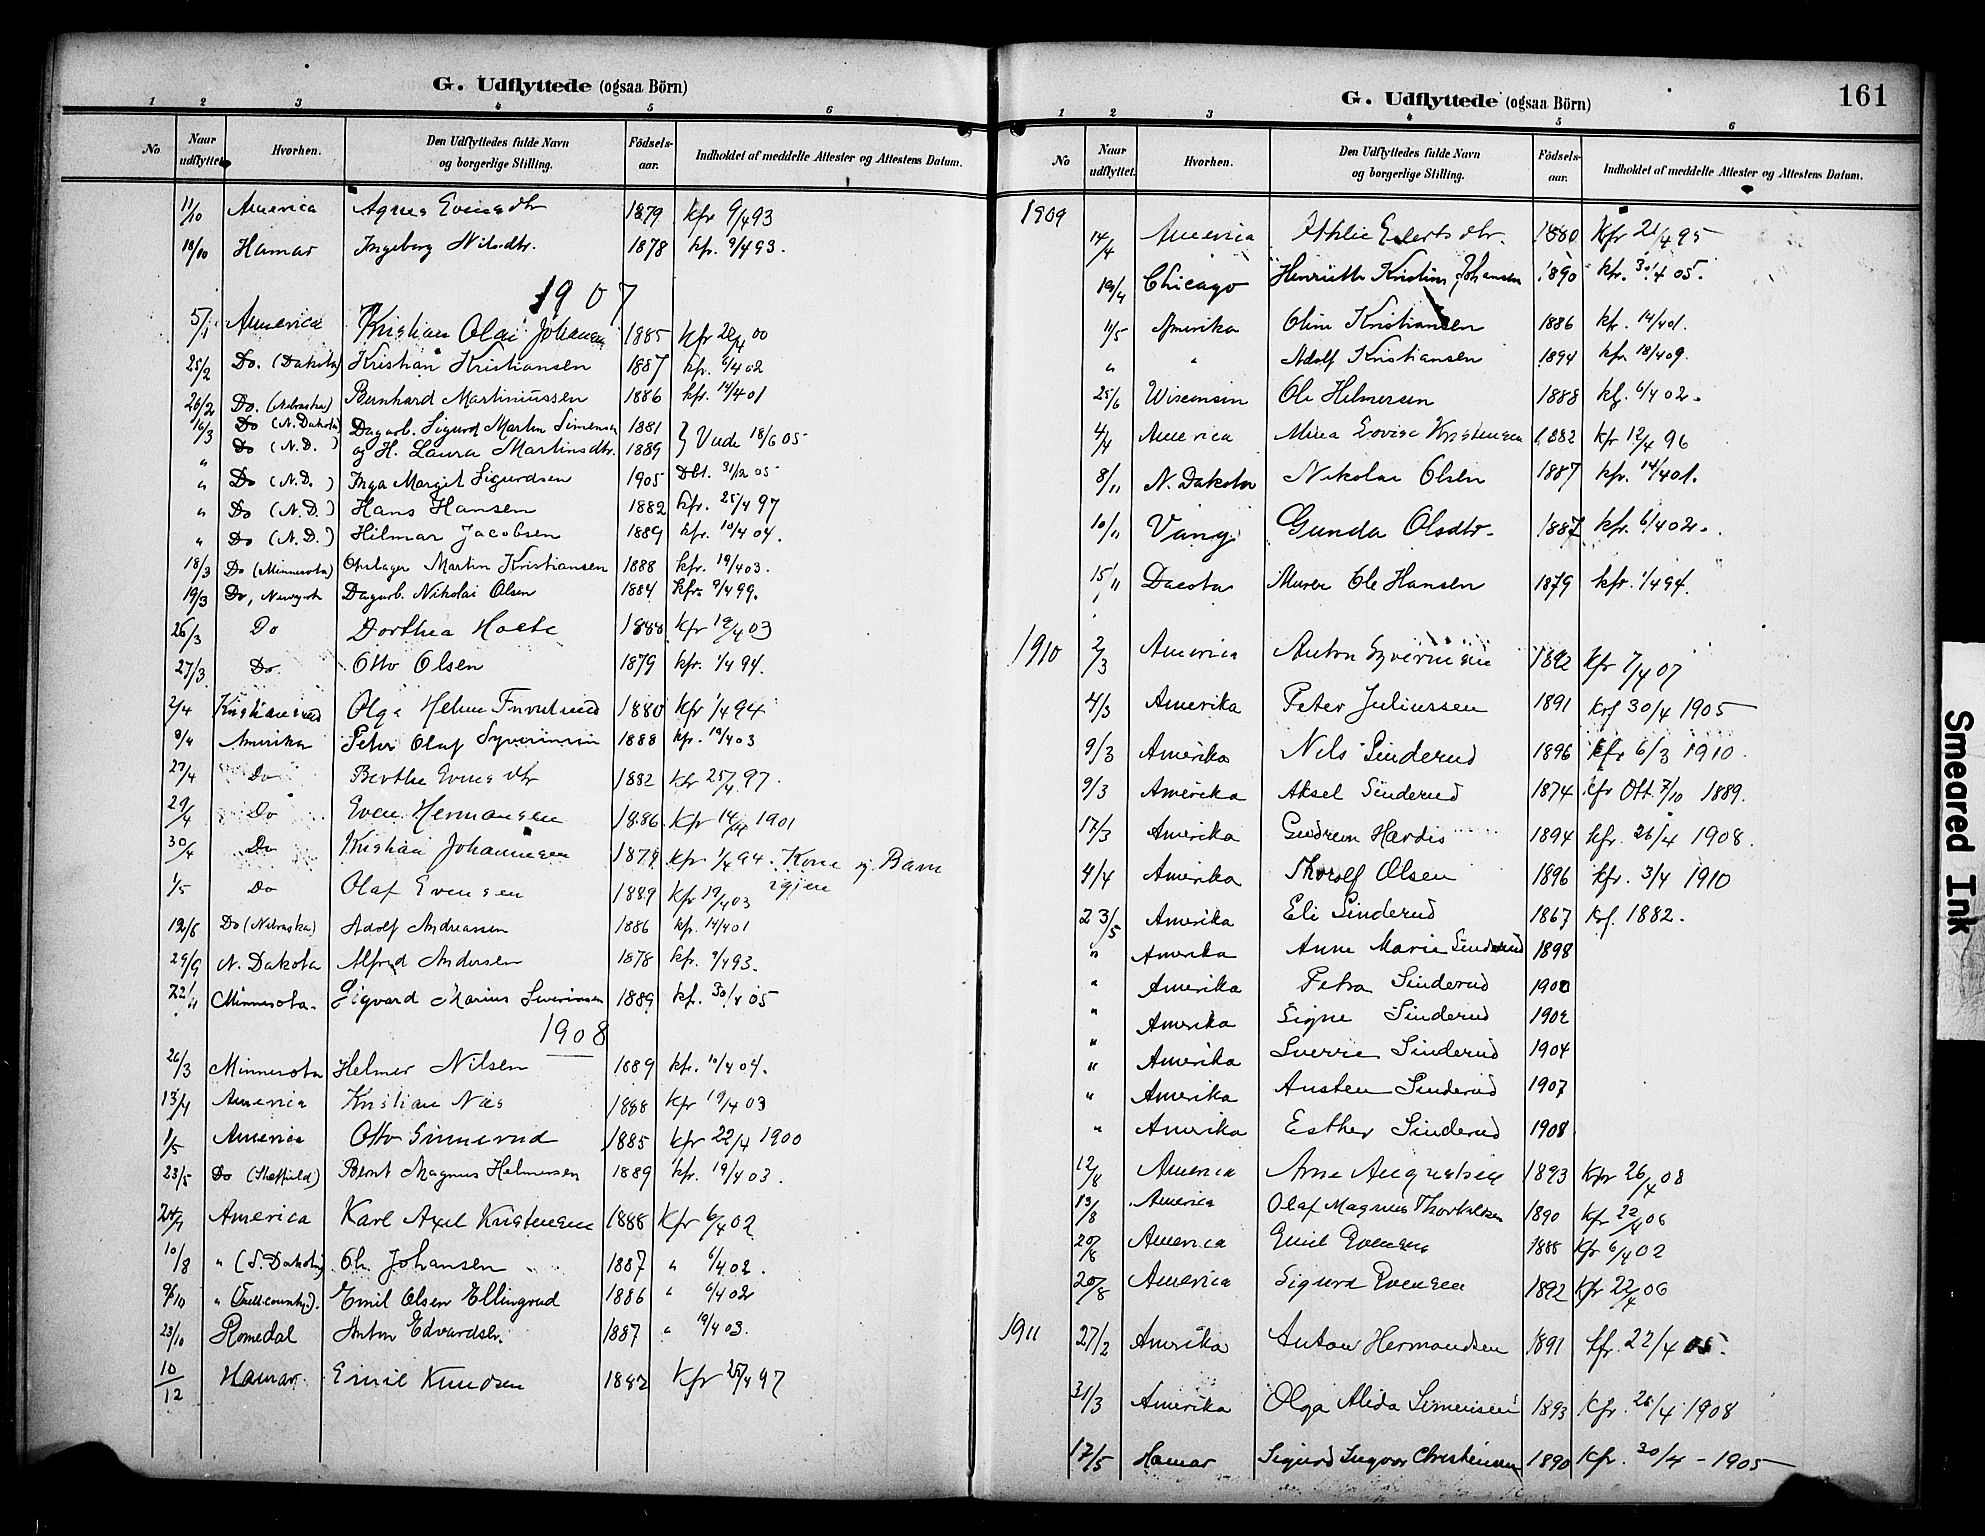 G. Udflyttede (ogsaa Börn)
1 2 3 4 5 6
No Naar udflyttet Hvorhen. Den Udflyttedes fulde Navn og borgerlige Stilling. Födsels-aar. Indholdet af meddelte Attester og Attestens Datum.
11/10 America Agnes Evensdtr 1879 kfr 9/4 93
18/10 Hamar Ingeborg Nilsdtr. 1878 kfr. 9/4 93.
1907
5/1 America Kristian Olai Johansen 1885 kfr 22/4 00
25/2 Do. (Dakota) Kristian Kristiansen 1887 kfr. 6/4 02
26/2 Do. (Nebraska) Bernhard Martiniussen 1886 kfr. 14/4 01
16/3 Do (N. Dakota) Dagarb. Sigurd Martin Simensen 1881
" Do (N.D.) og H. Laura Martinsdtr. 1889 } Viede 18/6 05
" Do (N.D.) Inga Margit Sigurdsen 1905 Dbt. 31/2 05
" Do (N.D.) Hans Hansen 1882 kfr. 25/4 97
" Do (N.D.) Hilmar Jacobsen 1889 kfr. 10/4 04.
18/3 Do (Minnesota) Martin Kristiansen 1888 kfr. 19/4 03.
19/3 Do, Newyork Dagarb. Nikolai Olsen 1884 kfr. 9/4 99.
26/3 Do Dorthea 1888 kfr 19/4 03
27/3 Do. Otto Olsen 1879 kfr. 1/4 94.
2/4 Kristianssund Olga Helene 1880 kfr 1/4 94
8/4 Amerika Peter Olaf Syverinsen 1888 kfr. 19/4 03
27/4 Do Berthe Evensdtr 1882 kfr 25/4 97.
29/4 Do Even Hermansen 1886 kfr 14/4 1901
30/4 Do Kristian Johannesen 1879 kfr 1/4 94. Kone og Barn igjen
1/5 Do Olaf Evensen 1889 kfr 19/4 03
19/6 Do (Nebraska) Adolf Andreassen 1886 kfr. 14/4 01
29/9 N. Dakota Alfred Andersen 1878 kfr. 9/4 93.
22/11 Minnesota. Sigvard Marius Severinsen 1889 kf. 30/4 05
1908
26/3 Minnesota Helmer Nilsen 1889 kfr. 10/4 04.
13/4 America Kristian Næs 1888 kfr 19/4 03
1/5 America Otto Sinnerud 1885 kfr 22/4 1900
23/5 Do (Sheffield) Bernt Magnus Helmersen 1889 kfr. 19/4 03.
24/7 America Karl Axel Kristensen 1888 Kfr 6/4 02
10/8 " (S. Dakota) Ole Johansen 1887 " 6/4 02.
9/10 " Emil Olsen Ellingsrud 1886 " 6/4 02
23/10 Romedal Anton Edvardsen. 1887 " 19/4 03.
10/12 Hamar Emil Knudsen 1882 Kfr 25/4 97
G. Udflyttede (ogsaa Börn) 161
1 2 3 4 5 6
No Naar udflyttet. Hvorhen. Den Udflyttedes fulde Navn og borgerlige Stilling. Födsels-aar. Indholdet af meddelte Attester og Attestens Datum.
1909
14/4 America Othlie Evertsdtr. 1880 Kfr 21/4 95
19/4 Chicago Henriette Kristine Johansen 1890 kfr. 30/4 05.
11/5 Amerika Oline Kristiansen 1886 kfr. 14/4 01.
" " Adolf Kristiansen 1894 kfr. 18/4 09.
25/6 Wisconsin Ole Helmersen 1888 kf. 6/4 02.
4/4 America Mina Lovise Kristensen 1882 kfr 12/4 96
8/11 N. Dakota Nikolai Olsen 1887 kfr. 14/4 01.
10/11 Vang Gunda Olsdtr. 1887 kfr. 6/4 02.
15/11 Dacota Murer Ole Hansen 1879 kfr. 1/4 94.
1910 2/3 America Anton Syverinsen 1892 Kfr 7/4 07
4/3 Amerika Peter Juliussen 1891 Krf 30/4 1905
9/3 Amerika Nils Sinderud 1896 kfr 6/3 1910.
9/3 Amerika Aksel Sinderud 1874 kfr Ott. 7/10 1889.
17/3 Amerika Gudrun Hardis 1894 kfr. 26/4 1908.
4/4 Amerika Thorolf Olsen 1896 kfr. 3/4 1910
23/5 Amerika Eli Sinderud 1867 Krf. 1882.
" Amerika Anne Marie Sinderud 1898
" Amerika Petra Sinderud 1900
" Amerika Signe Sinderud 1902
" Amerika Sverre Sinderud 1904
" Amerika Austen Sinderud 1907
" Amerika Esther Sinderud 1908
12/8 America Arne Augustsen 1893 Kfr 26/4 08
13/8 America Olaf Magnus Thorvaldsen 1890 Kfr 22/4 06
20/8 America Emil Evensen 1888 Kfr 6/4 02
20/8 America Sigurd Evensen 1892 Kfr 22/4 06
1911 27/2 Amerika Anton Hermandsen 1891 kfr. 22/4 05.
31/3 Amerika Olga Alida Simensen 1893 Kfr. 26/4 1908
17/5 Hamar Sigurd Ingvar Christiansen 1890 Kfr. 30/4 - 1905
Smeared Ink